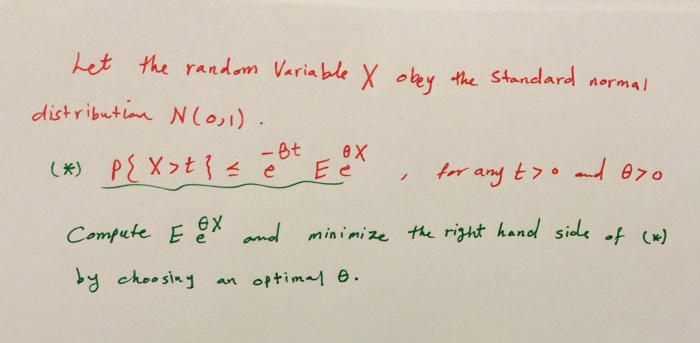 Let the random Variable X obey the Standard normal
distribution N(0,1).
(*) P{X>t} ≤ e^{-θt} E e^{θX} , for any t>0 and θ>0
Compute E e^{θX} and minimize the right hand side of (*)
by choosing an optimal θ.